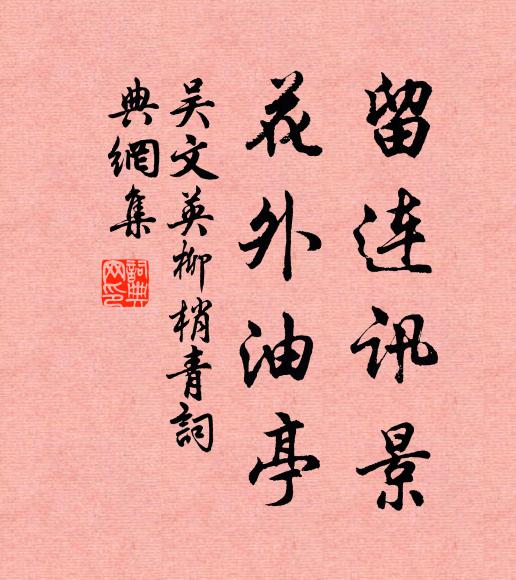 留连讯景
花外油亭
吴文英柳梢青詞
典網集
詞典网印